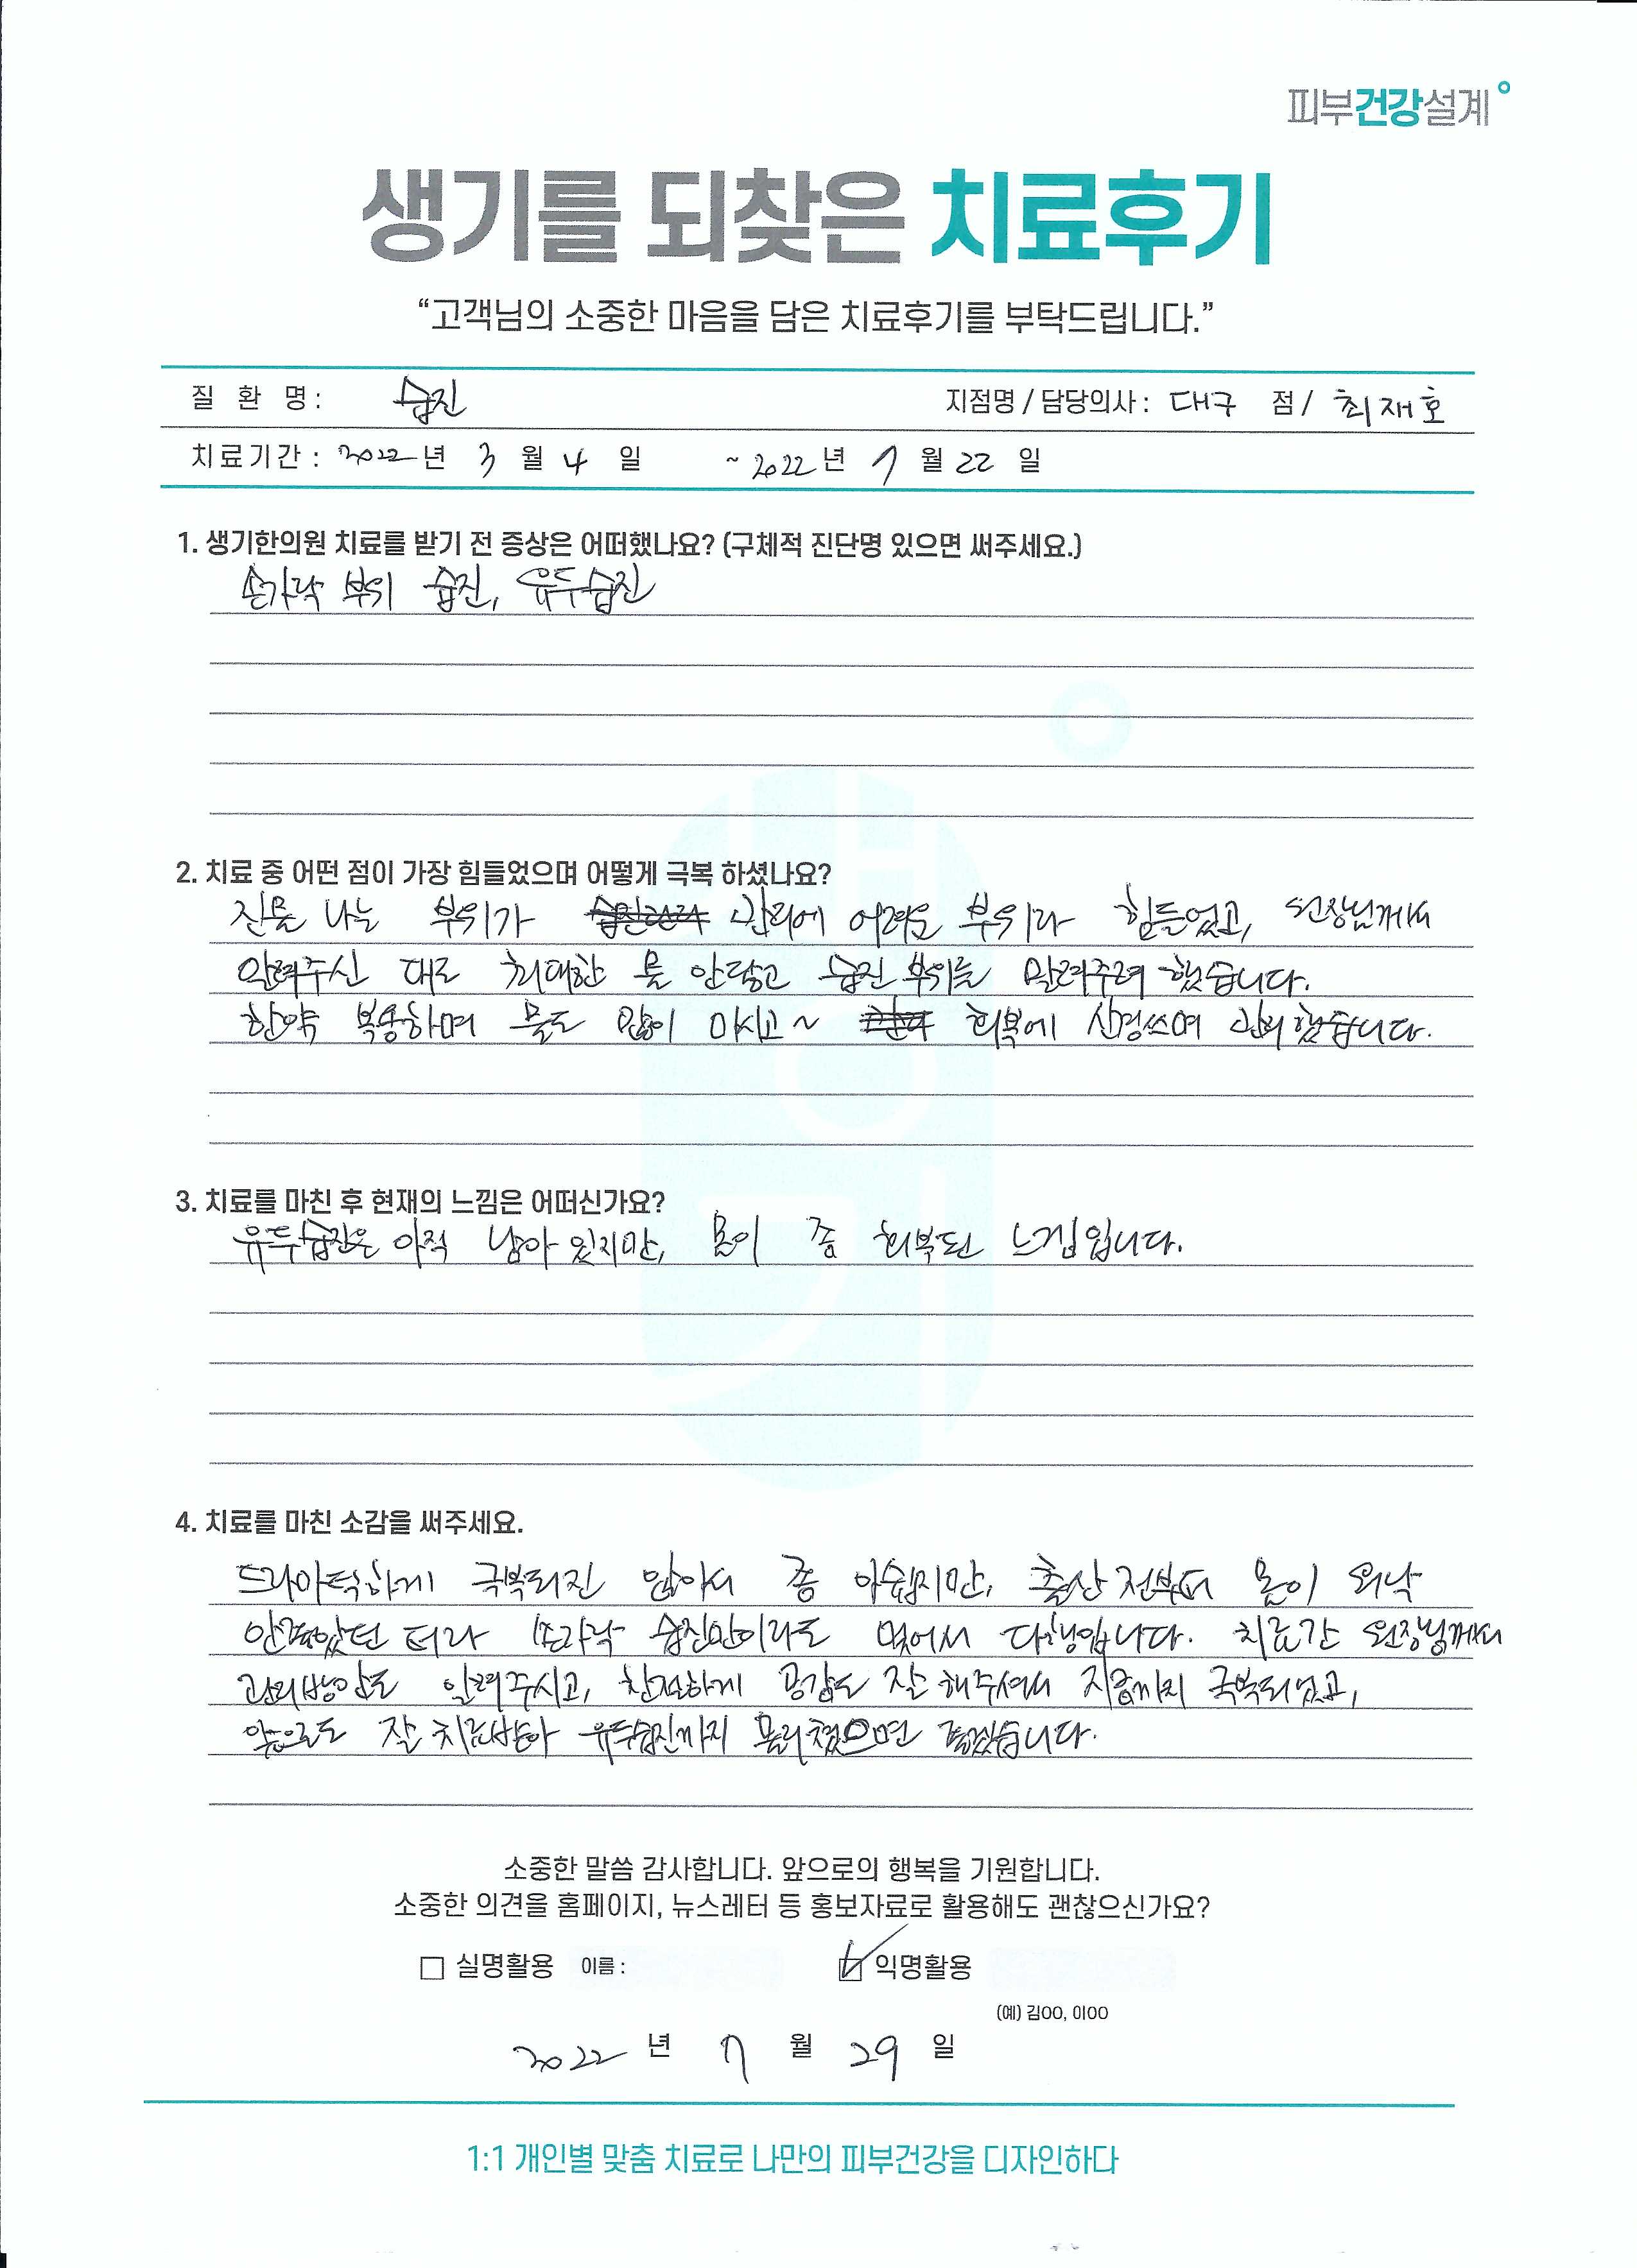 피부건강설계
생기를 되찾은 치료후기
“고객님의 소중한 마음을 담은 치료후기를 부탁드립니다.”
질 환 명 : 습진 지점명 / 담당의사 : 대구 점 / 최재호
치료기간 : 2022 년 3 월 4 일 ~ 2022 년 7 월 22 일
1. 생기한의원 치료를 받기 전 증상은 어떠했나요? (구체적 진단명 있으면 써주세요.)
손가락 부위 습진, 유두습진
2. 치료 중 어떤 점이 가장 힘들었으며 어떻게 극복 하셨나요?
진물 나는 부위가 관리에 어려운 부위라 힘들었고, 원장님께서
알려주신 대로 최대한 물 안닿고 습진 부위를 말려주려 했습니다.
한약 복용하며 물도 많이 마시고~ 회복에 신경쓰며 관리했습니다.
3. 치료를 마친 후 현재의 느낌은 어떠신가요?
유두습진은 아직 남아 있지만, 몸이 좀 회복된 느낌입니다.
4. 치료를 마친 소감을 써주세요.
드라마틱하게 극복되진 않아서 좀 아쉽지만, 출산 전부터 몸이 워낙
안좋았던 터라 손가락 습진만이라도 멎어서 다행입니다. 치료간 원장님께서
관리방안도 알려주시고, 친절하게 공감도 잘 해주셔서 지금까지 극복되었고,
앞으로도 잘 치료받아 유두습진까지 물리쳤으면 좋겠습니다.
소중한 말씀 감사합니다. 앞으로의 행복을 기원합니다.
소중한 의견을 홈페이지, 뉴스레터 등 홍보자료로 활용해도 괜찮으신가요?
실명활용 이름 : 익명활용
(예) 김OO, 이OO
2022 년 7 월 29 일
1:1 개인별 맞춤 치료로 나만의 피부건강을 디자인하다